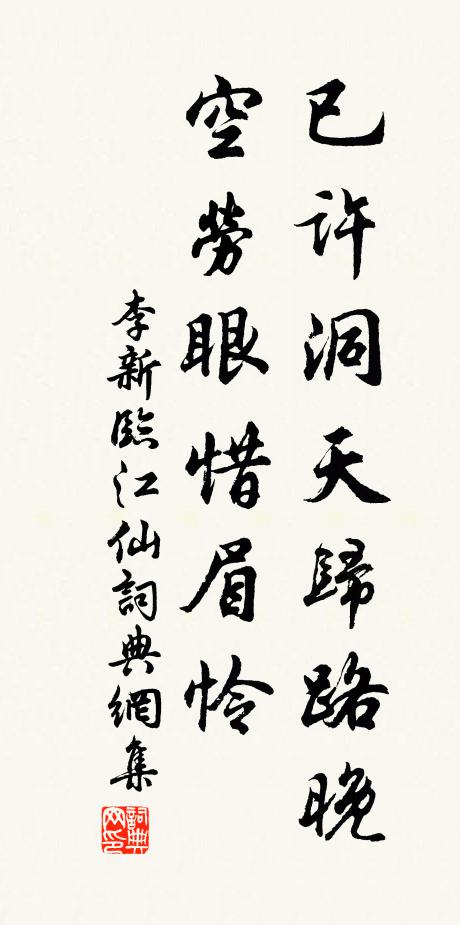 已許洞天歸路晚
空勞眼惜眉憐
李新臨江仙詞典網集
詞典
网印